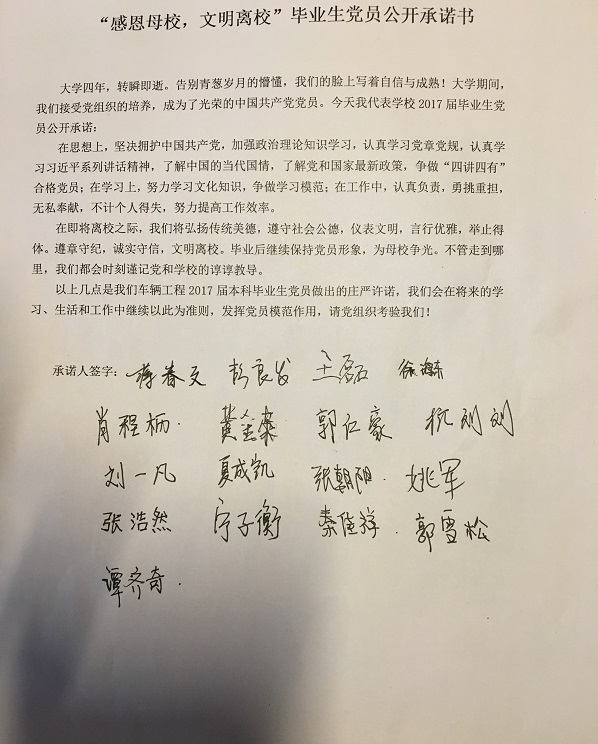 “感恩母校，文明离校”毕业生党员公开承诺书
大学四年，转瞬即逝。告别青葱岁月的懵懂，我们的脸上写着自信与成熟！大学期间，
我们接受党组织的培养，成为了光荣的中国共产党党员。今天我代表学校 2017 届毕业生党
员公开承诺：
在思想上，坚决拥护中国共产党，加强政治理论知识学习，认真学习党章党规，认真学
习习近平系列讲话精神，了解中国的当代国情，了解党和国家最新政策，争做“四讲四有”
合格党员；在学习上，努力学习文化知识，争做学习模范；在工作中，认真负责，勇挑重担，
无私奉献，不计个人得失，努力提高工作效率。
在即将离校之际，我们将弘扬传统美德，遵守社会公德，仪表文明，言行优雅，举止得
体。遵章守纪，诚实守信，文明离校。毕业后继续保持党员形象，为母校争光。不管走到哪
里，我们都会时刻谨记党和学校的谆谆教导。
以上几点是我们车辆工程 2017 届本科毕业生党员做出的庄严许诺，我们会在将来的学
习、生活和工作中继续以此为准则，发挥党员模范作用，请党组织考验我们！
承诺人签字： 蒋春文 彭良发 王磊
肖程柄 郭仁豪
刘一凡 夏成凯 张朝阳 姚军
张浩然 宁子衡 秦佳祥 郭雪松
谭齐奇